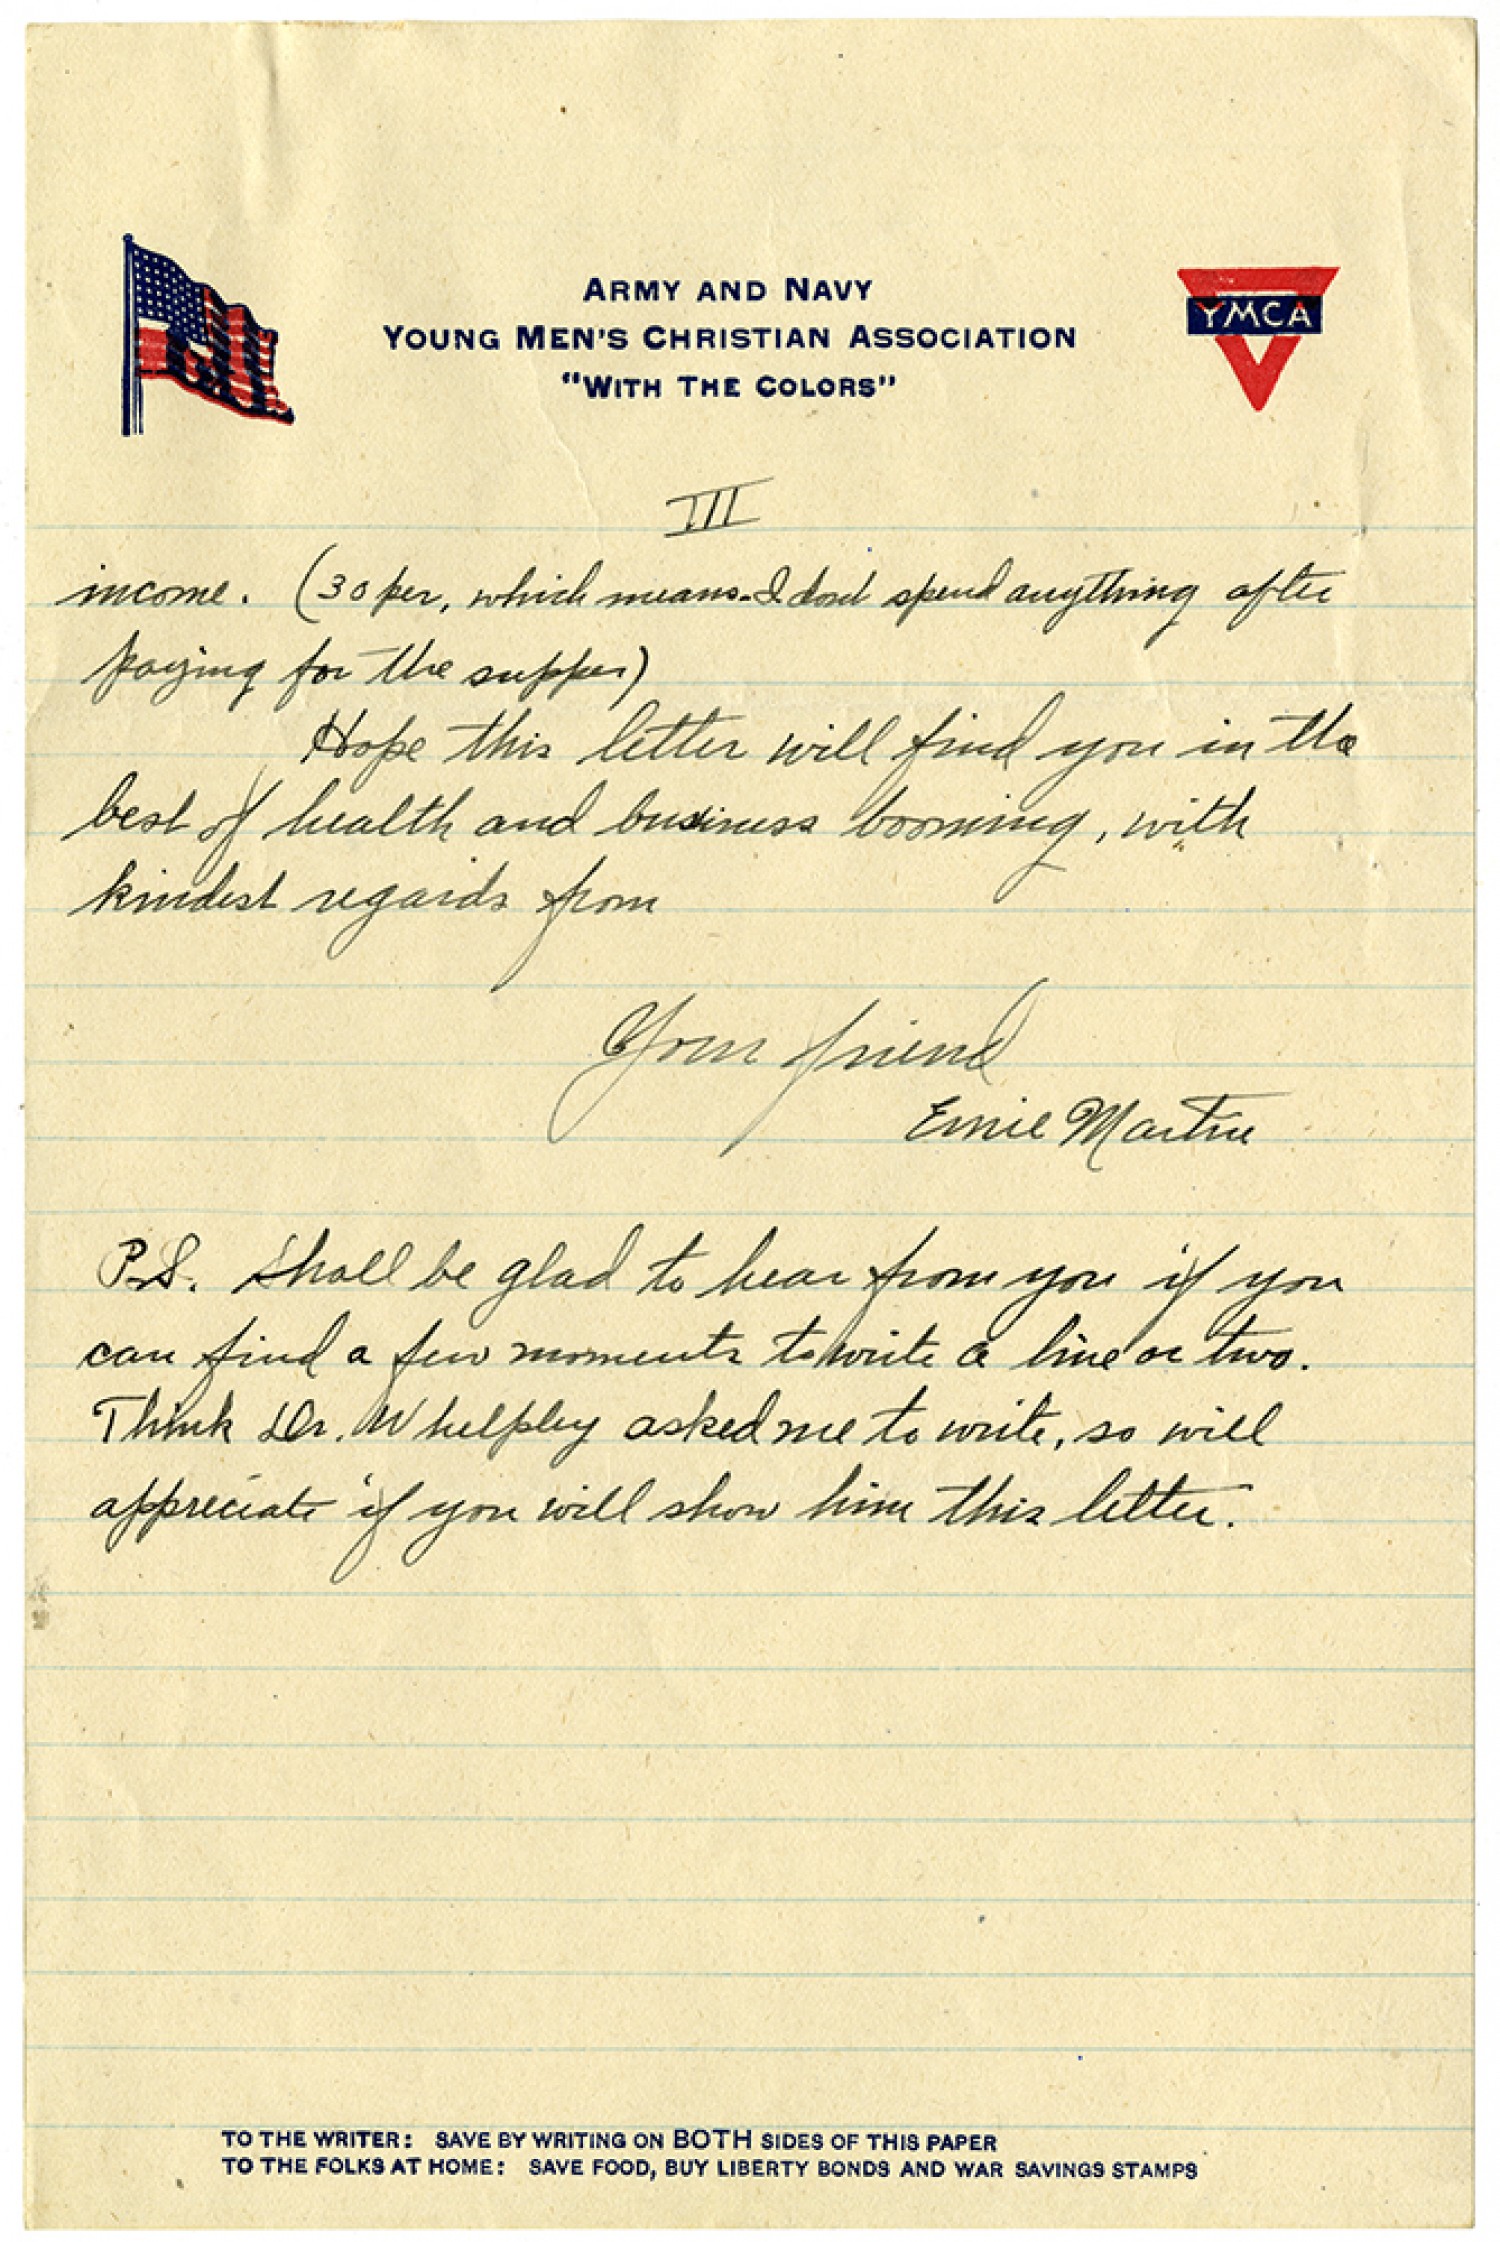 ARMY AND NAVY
YOUNG MEN'S CHRISTIAN ASSOCIATION
"WITH THE COLORS"
YMCA
III
income. (30 per, which means I dont spend anything after
paying for the supper)
Hope this letter will find you in the
best of health and business booming, with
kindest regards from
Your friend
Ernie Martin
P.S. Shall be glad to hear from you if you
can find a few moments to write a line or two.
Think Dr. Whelpley asked me to write, so will
appreciate if you will show him this letter.
TO THE WRITER: SAVE BY WRITING ON BOTH SIDES OF THIS PAPER
TO THE FOLKS AT HOME: SAVE FOOD, BUY LIBERTY BONDS AND WAR SAVINGS STAMPS